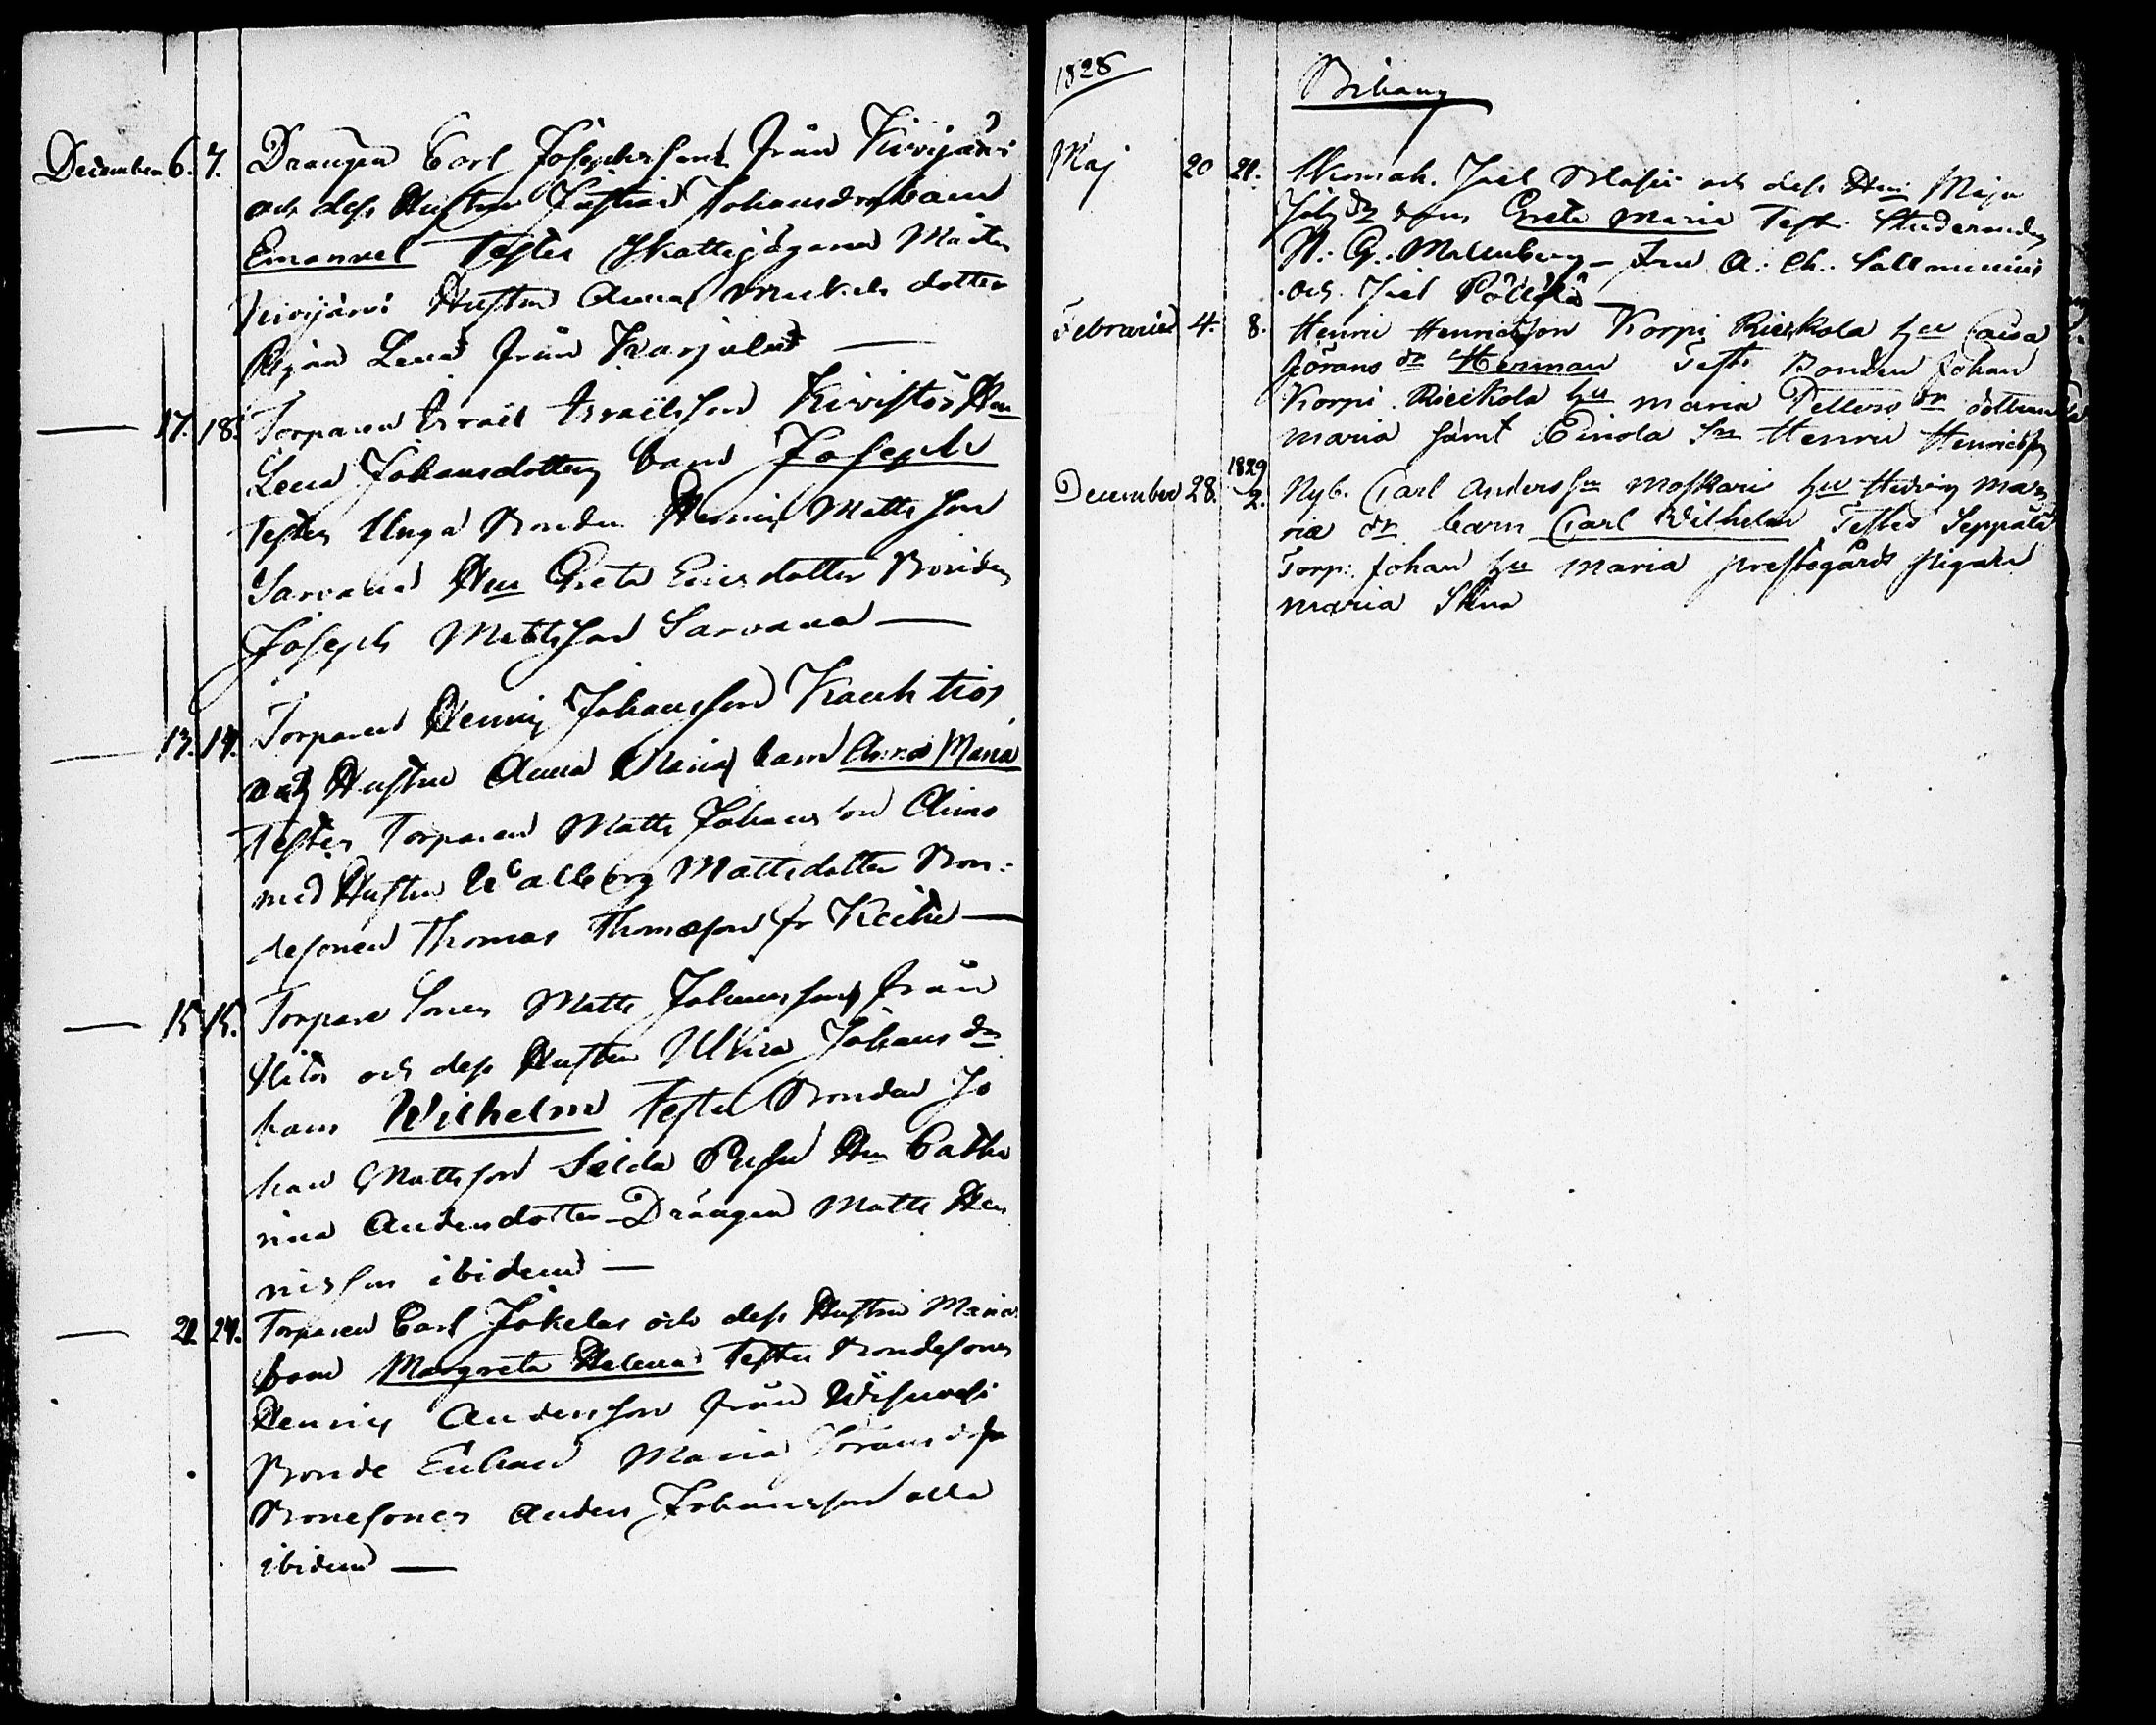 December 6. 7. Drängen Carl Josephsson från Kivijärvi
och dess Hustru Justina Johansdr barn
Emanuel Testes Skattejägaren Matts
Kivijärvi Hustru Anna Michels dotter
Pigan Lena från Karjula —
— 17. 18. Torparen Israel Israelsson Kivistö Hu
Lena Johansdotter barn Joseph
Testes Unga Bonden Henric Matts son
Sarvana Hu Greta Ericsdotter Bonden
Joseph Mattsson Sarvana —
— 13. 14. Torparen Henric Johansson
och Hustru Anna Maria barn Anna Maria
Testes Torparen Matts Johansson
med Hustru Walborg Mattsdotter Bon-
desonen Thomas Thomasson fr —
— 15 15. Torpare Sonen Matts Johansson från
och dess Hustru Ulrica Johans dr
barn Wilhelm Testes Bonden Jo
han Mattsson Hu Catha
rina Andersdotter Drängen Matts Hen
ricsson ibidem —
— 21. 24. Torparen Carl Jokela och dess Hustru Maria
barn Margreta Helena Testes Bondesonen
Henric Andersson från
Bonde Enkan Maria Göransdr
Bonesonen Anders Johansson alla
ibidem —
1828
Bihang
Maj 20 21. Skomak. Joel och dess Hu Maja
dr barn Greta Maria Test. Studeranden
N. G. Malmberg — Fru A. Ch. Sallmenius
och Joel
Februarii 4. 8. Henric Henricsson Korpi Rieskola hu Caisa
Görans dr Herman Testes Bonden Johan
Korpi Rieskola hu Maria Petters dr dottren
Maria samt Einola Sn Henric Henricsson
December 28. 1829 2. Nyb. Carl Anders sn hu Hedvig Ma
riæ dr barn Carl Wilhelm Testes Seppälä
Torp: Johan hu Maria prestegårds pigan
Maria Stina